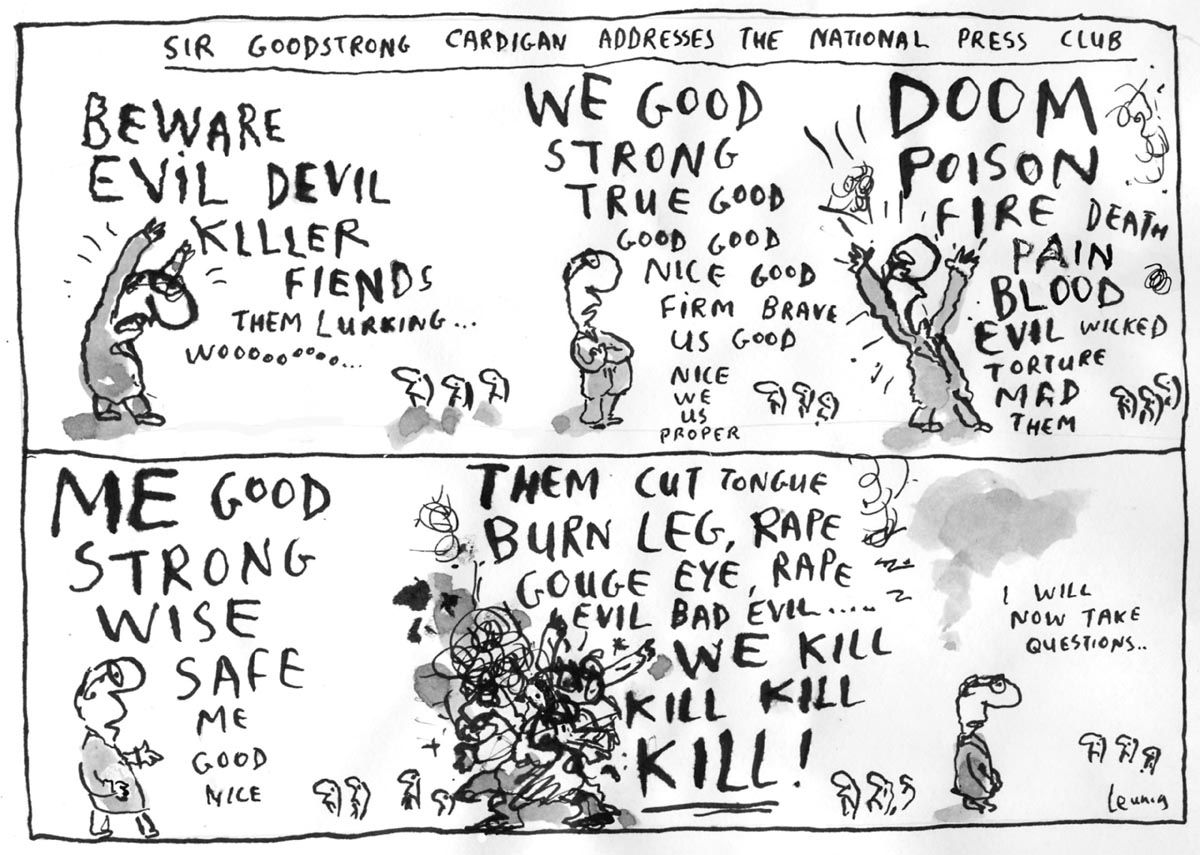 SIR GOODSTRONG CARDIGAN ADDRESSES THE NATIONAL PRESS CLUB
BEWARE
EViL DEVIL
KILLER
FIENDS
THEM LURKING...
WOOOOOOOOO...
WE GOOD
STRONG
TRUE GOOD
GOOD GOOD
NICE GOOD
FIRM BRAVE
US GOOD
NICE
WE
US
PROPER
DOOM
POISON
FIRE DEATH
PAIN
BLOOD
EVIL WICKED
TORTURE
MAD
THEM
ME GOOD
STRONG
WISE
SAFE
ME
GOOD
NICE
THEM CUT TONGUE
BURN LEG, RAPE
GOUGE EYE, RAPE
EVIL BAD EVIL.....
WE KILL
KILL KILL
KILL!
I WILL
NOW TAKE
QUESTIONS..
Leunig